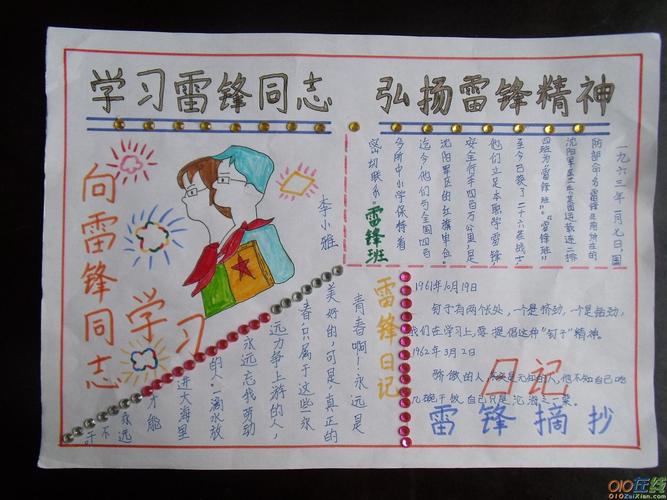 学习雷锋同志
弘扬雷锋精神
向雷锋同志
学习
李小雅
一九六三年一月七日，国
防部命名雷锋生前所在的
沈阳军区工兵某团运输连二排
四班为“雷锋班”。“雷锋班”
至今已换了二十六茬战士
他们立足本职学雷锋
安全行车四百万公里，是
沈阳军区的红旗单位
迄今，他们与全国四百
多所中小学保持着
密切联系。
雷锋班
雷锋日记
青春啊！永远是
美好的，可是真正的
青春，只属于这些永
远力争上游的人，
永远忘我劳动
的人，
一滴水放
进大海里
才能
永远
不
干
1961年10月19日
钉子有两个长处，一个是挤劲，一个是钻劲，
我们在学习上，要提倡这种“钉子”精神。
1962年3月2日
骄傲的人，其实是无知的人，他不知自己吃
几碗干饭，自己只是沧海之一粟。
日记
雷锋摘抄
010在线
010ZaiXian.com